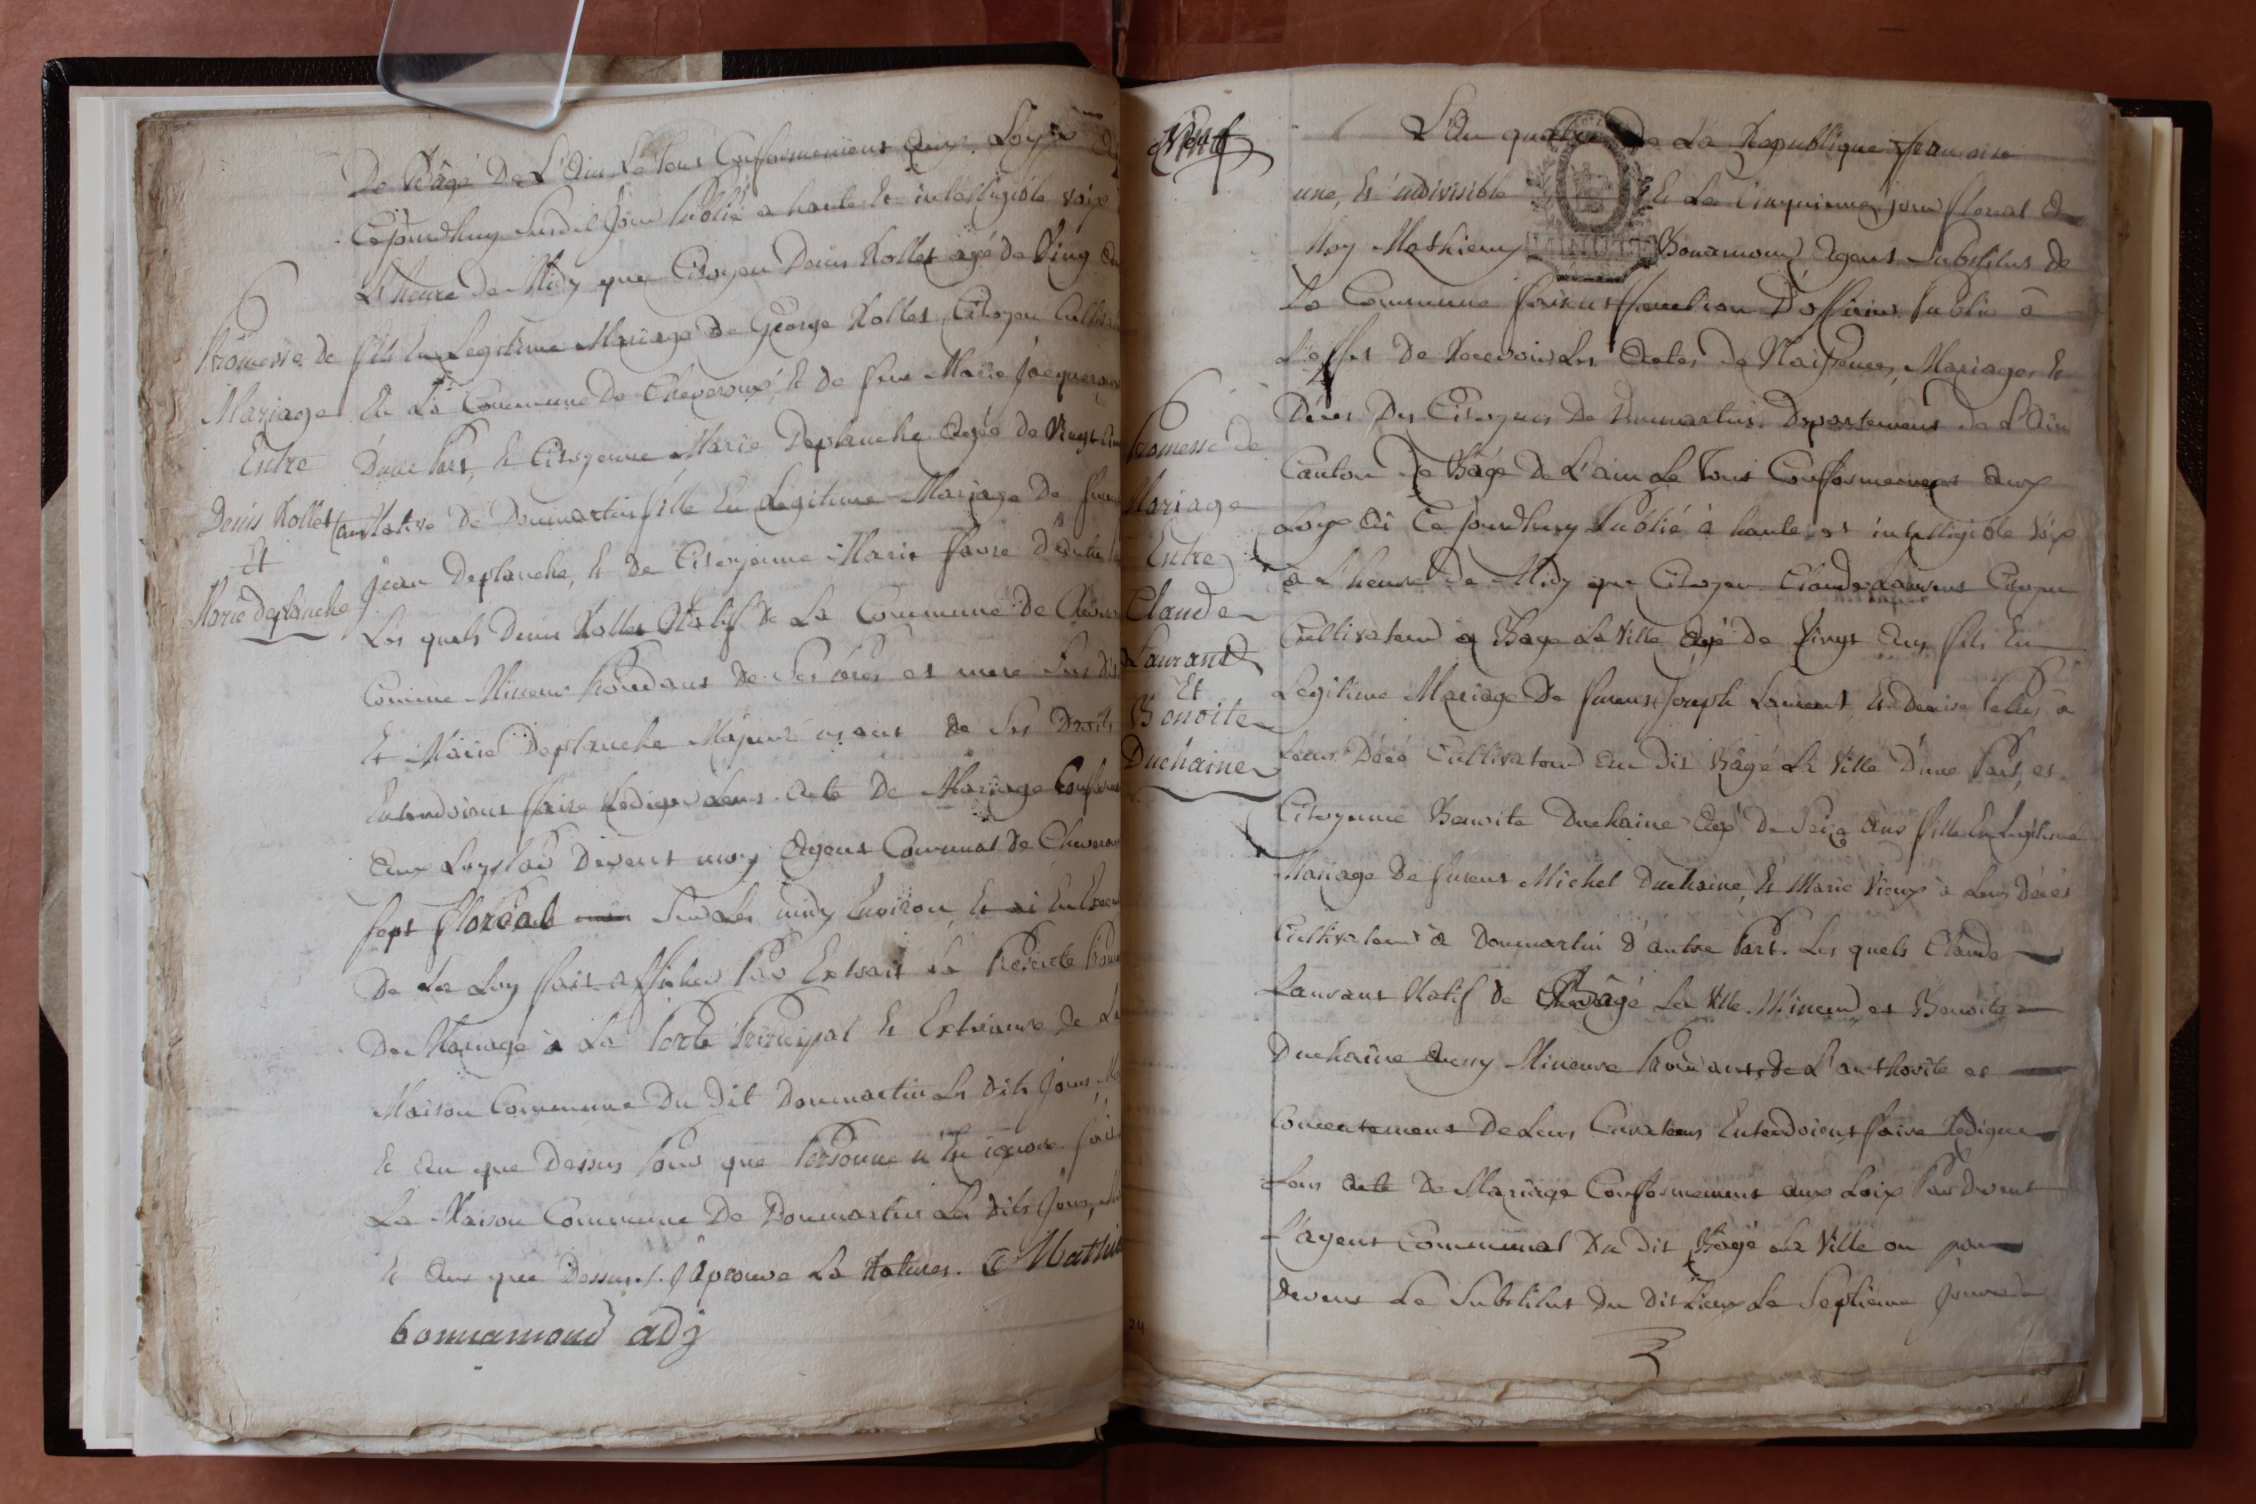 De Bâgé De L'ain Le tout Conformement aux Loyx
Cejourdhuy susdit Jour Publié a haute et intelligible voix
L'heure de Midy que Citoyen Denis Rollet agé de Ving
Promesse de
Mariage
Entre
Denis Rollet
Et
Marie Deplanche
fils En Legitime Mariage de George Rollet, Citoyen
En La Commune De Cheveroux, Et de feue Marie
D'une Part, Et Citoyenne Marie Deplanche agée de Vingt
Native De Dommartin fille En Legitime Mariage De
Jean Deplanche, Et de Citoyenne Marie Favre D'autre
Les quels Denis Rollet Natif de La Commune de
Comme Mineur de Ses Pere et mere
Et Marie Deplanche Majeure usant de Ses Droits
Entendoient faire Rediger Leur acte De Mariage
aux Loys Devent moy Agent Communal de
sept Floréal Sur Les midy Environ, Et ai En
De La Loy fait afficher Par Extrait La Présente
De Mariage à La Porte Principal Et Extérieure de La
Maison Commune Du Dit Dommartin Les Dits Jours,
Et an que Dessus Pour que Personne n'En ignore fait
La Maison Commune De Dommartin Les Dits Jours,
Et ans que Dessus. J'aprouve La Mathieu
bonnamour adj
L'an quatre de La Republique francaise
une, Et indivisible Et Le Cinquieme jour floreal
Moy Mathieu Bonamour Agent Substitut de
La Commune faisant fonction D'officier Public à
L'effet De Recevoir Les Actes de Naissances, Mariages Et
Décès Des Citoyens De Dommartin Departement de L'ain
Canton de Bâgé De L'ain Le Tout Conformement aux
Loyx ai Cejourdhuy Publié à haute et intelligible Voix
à L'heure de Midy que Citoyen Claude Laurent Citoyen
Cultivateur a Bage La Ville agé de Vingt ans fils En
Legitime Mariage De furent Joseph Laurent, Et Denise à
Leurs Décé Cultivateur au Dit Bâgé La Ville D'une Part, et
Citoyenne Benoite Duchaine agé De Seize ans fille En Legitime
Mariage De furent Michel Duchaine, Et Marie Vieux à Leurs Décès
Cultivateur à Dommartin D'autre Part. Les quels Claude
Laurant Natif de Bâgé La Ville Mineur et Benoite
Duchaine aussy Mineure de L'authorité et
Consentement De Leurs Curateurs Entendoient faire Rediger
Leur acte De Mariage Conformement aux Loix Par Devent
L'agent Communal Du Dit Bâgé La Ville ou par
Devent Le Substitut Du Dit Lieux Le Septieme Jour de
Promesse de
Mariage
Entre
Claude
Laurant
Et
Benoite
Duchaine
24